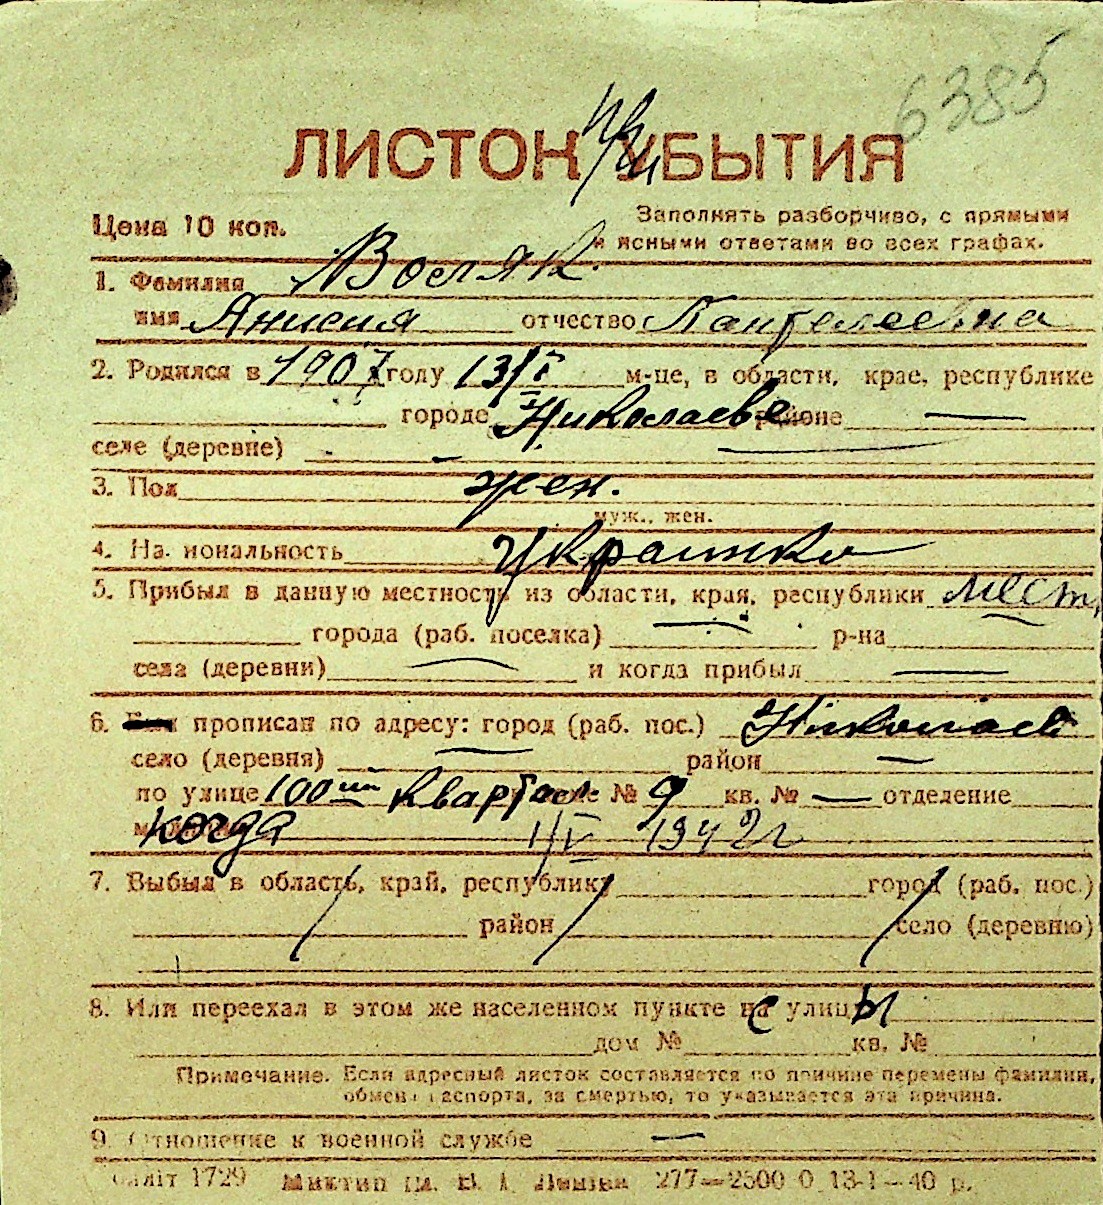 6385
ЛИСТОК УБЫТИЯ
Цена 10 коп.
Заполнять разборчиво, с прямыми
и ясными ответами во всех графах.
1. Фамилия Восляк
имя Анисия отчество Пантелеевна
2. Родился в 1907 году 13/I м-це, в области, крае, республике
городе Николаеве районе —
селе (деревне) —
3. Пол жен.
муж., жен.
4. Национальность Украинка
5. Прибыл в данную местность из области, края, республики мест.
города (раб. поселка) — р-на
села (деревни) — и когда прибыл —
6. прописан по адресу: город (раб. пос.) Николаев
село (деревня) — район —
по улице 100ый квартал № 9 кв. № — отделение
когда 1/V 1942 г
7. Выбыл в область, край, республику город (раб. пос.)
район село (деревню)
8. Или переехал в этом же населенном пункте с улицы
дом № кв. №
Примечание. Если адресный листок составляется по причине перемены фамилии,
обмена паспорта, за смертью, то указывается эта причина.
9. Отношение к военной службе —
1729 277—2500 0 13-1—40 р.